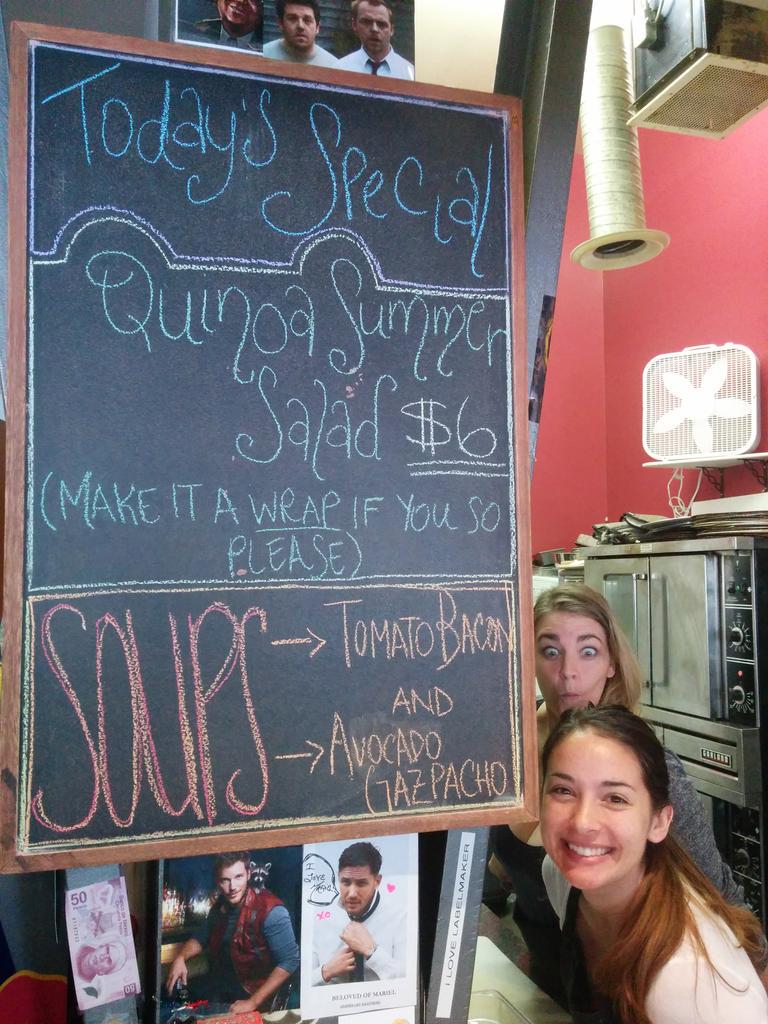 Today's Special
Quinoa Summer
Salad $6
(MAKE IT A WRAP IF YOU SO
PLEASE)
SOUPS → TOMATO BACON
AND
→ AVOCADO
GAZPACHO
50
I LOVE
XO
BELOVED OF MARIEL
I LOVE LABELMAKER
GARLAND